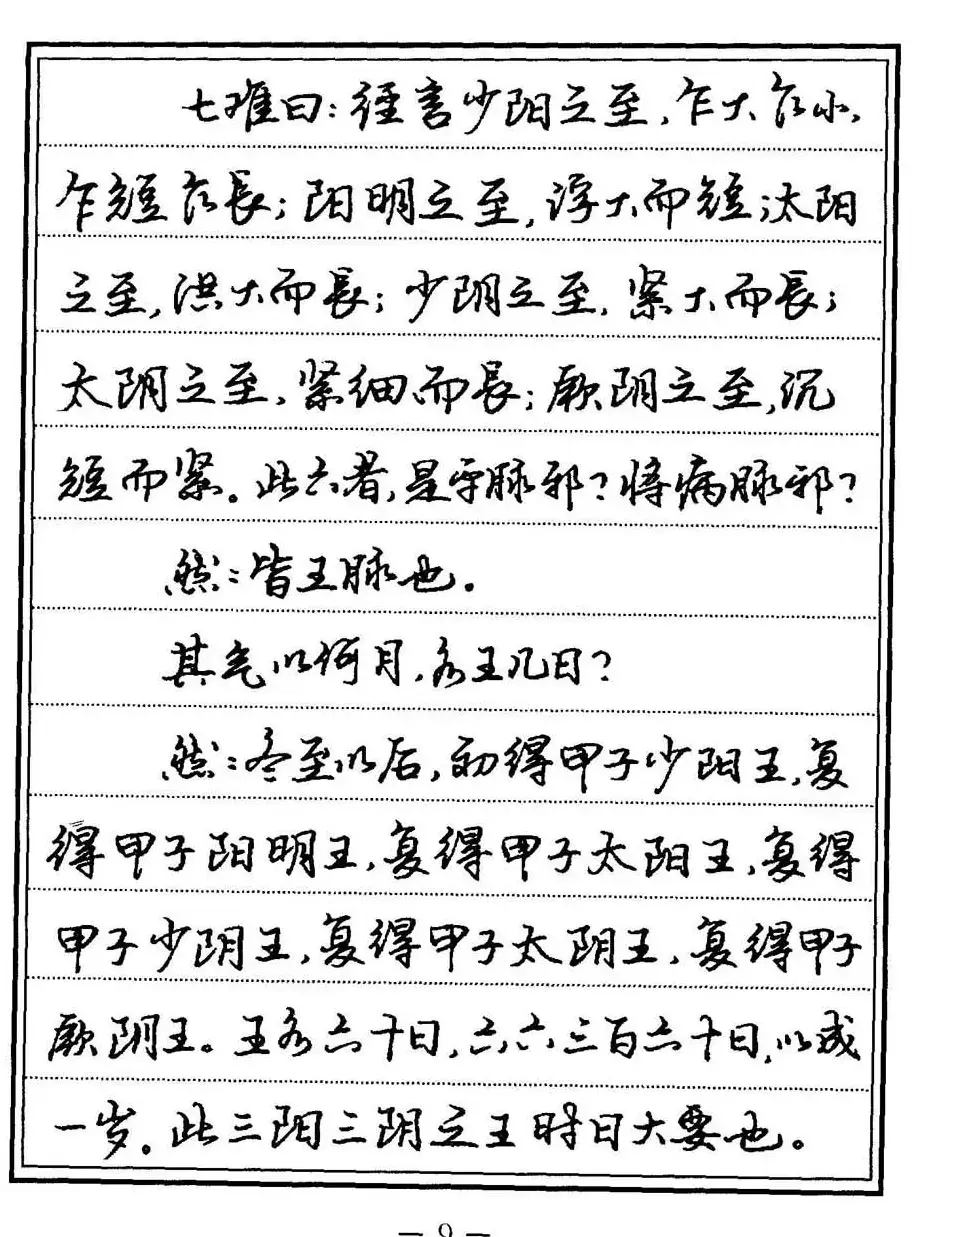 七难曰：经言少阳之至，乍大乍小，
乍短乍長；阳明之至，浮大而短；太阳
之至，洪大而長；少阴之至，紧大而長；
太阴之至，紧细而長；厥阴之至，沉
短而紧。此六者，是平脉邪？将病脉邪？
然：皆王脉也。
其气以何月，各王几日？
然：冬至以后，初得甲子少阳王，复
得甲子阳明王，复得甲子太阳王，复得
甲子少阴王，复得甲子太阴王，复得甲子
厥阴王。王各六十日，六六三百六十日，以成
一岁。此三阳三阴之王时日大要也。
— 9 —